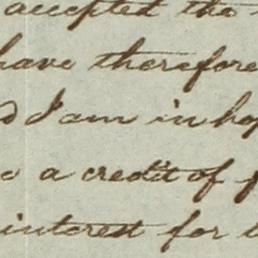 accepted the
have therefore
d I am in hop
a credit of
interest for